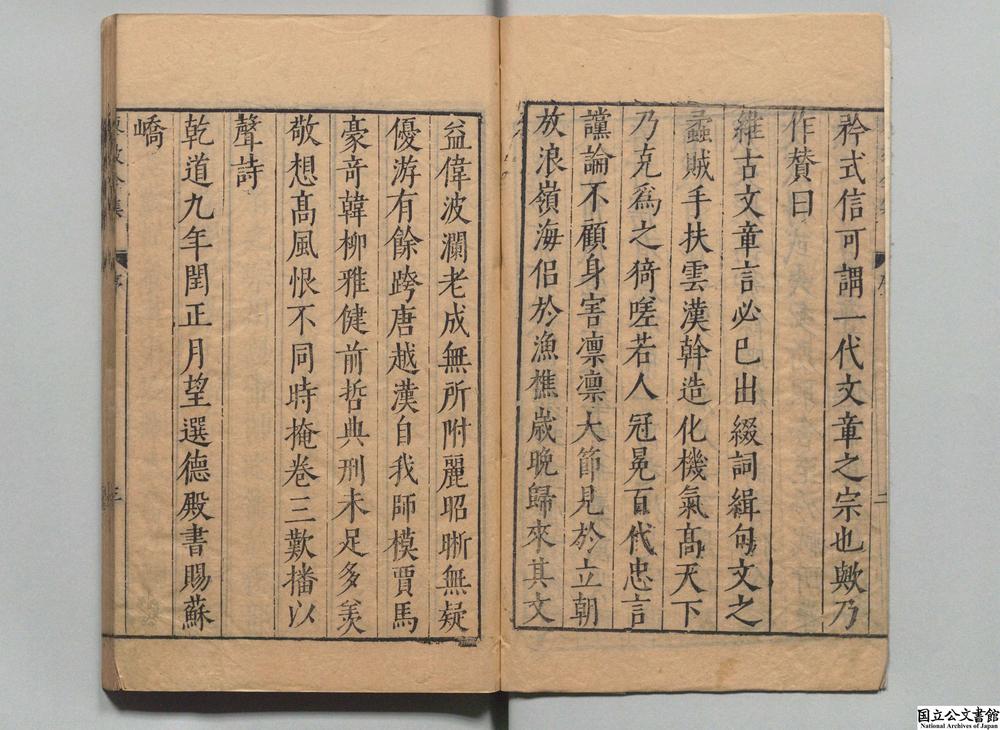 矜式信可謂一代文章之宗也歟乃
作贊曰
維古文章言必己出綴詞緝句文之
蟊賊手扶雲漢斡造化機氣髙天下
乃克爲之猗嗟若人冠冕百代忠言
讜論不顧身害凛凛大節見於立朝
放浪嶺海侣於漁樵歳晚歸來其文
益偉波瀾老成無所附麗昭晣無疑
優游有餘跨唐越漢自我師模賈馬
豪竒韓柳雅健前哲典刑未足多羡
敬想髙風恨不同時掩卷三歎播以
聲詩
乾道九年閏正月望選德殿書賜蘇
嶠
序
三
国立公文書館
National Archives of Japan